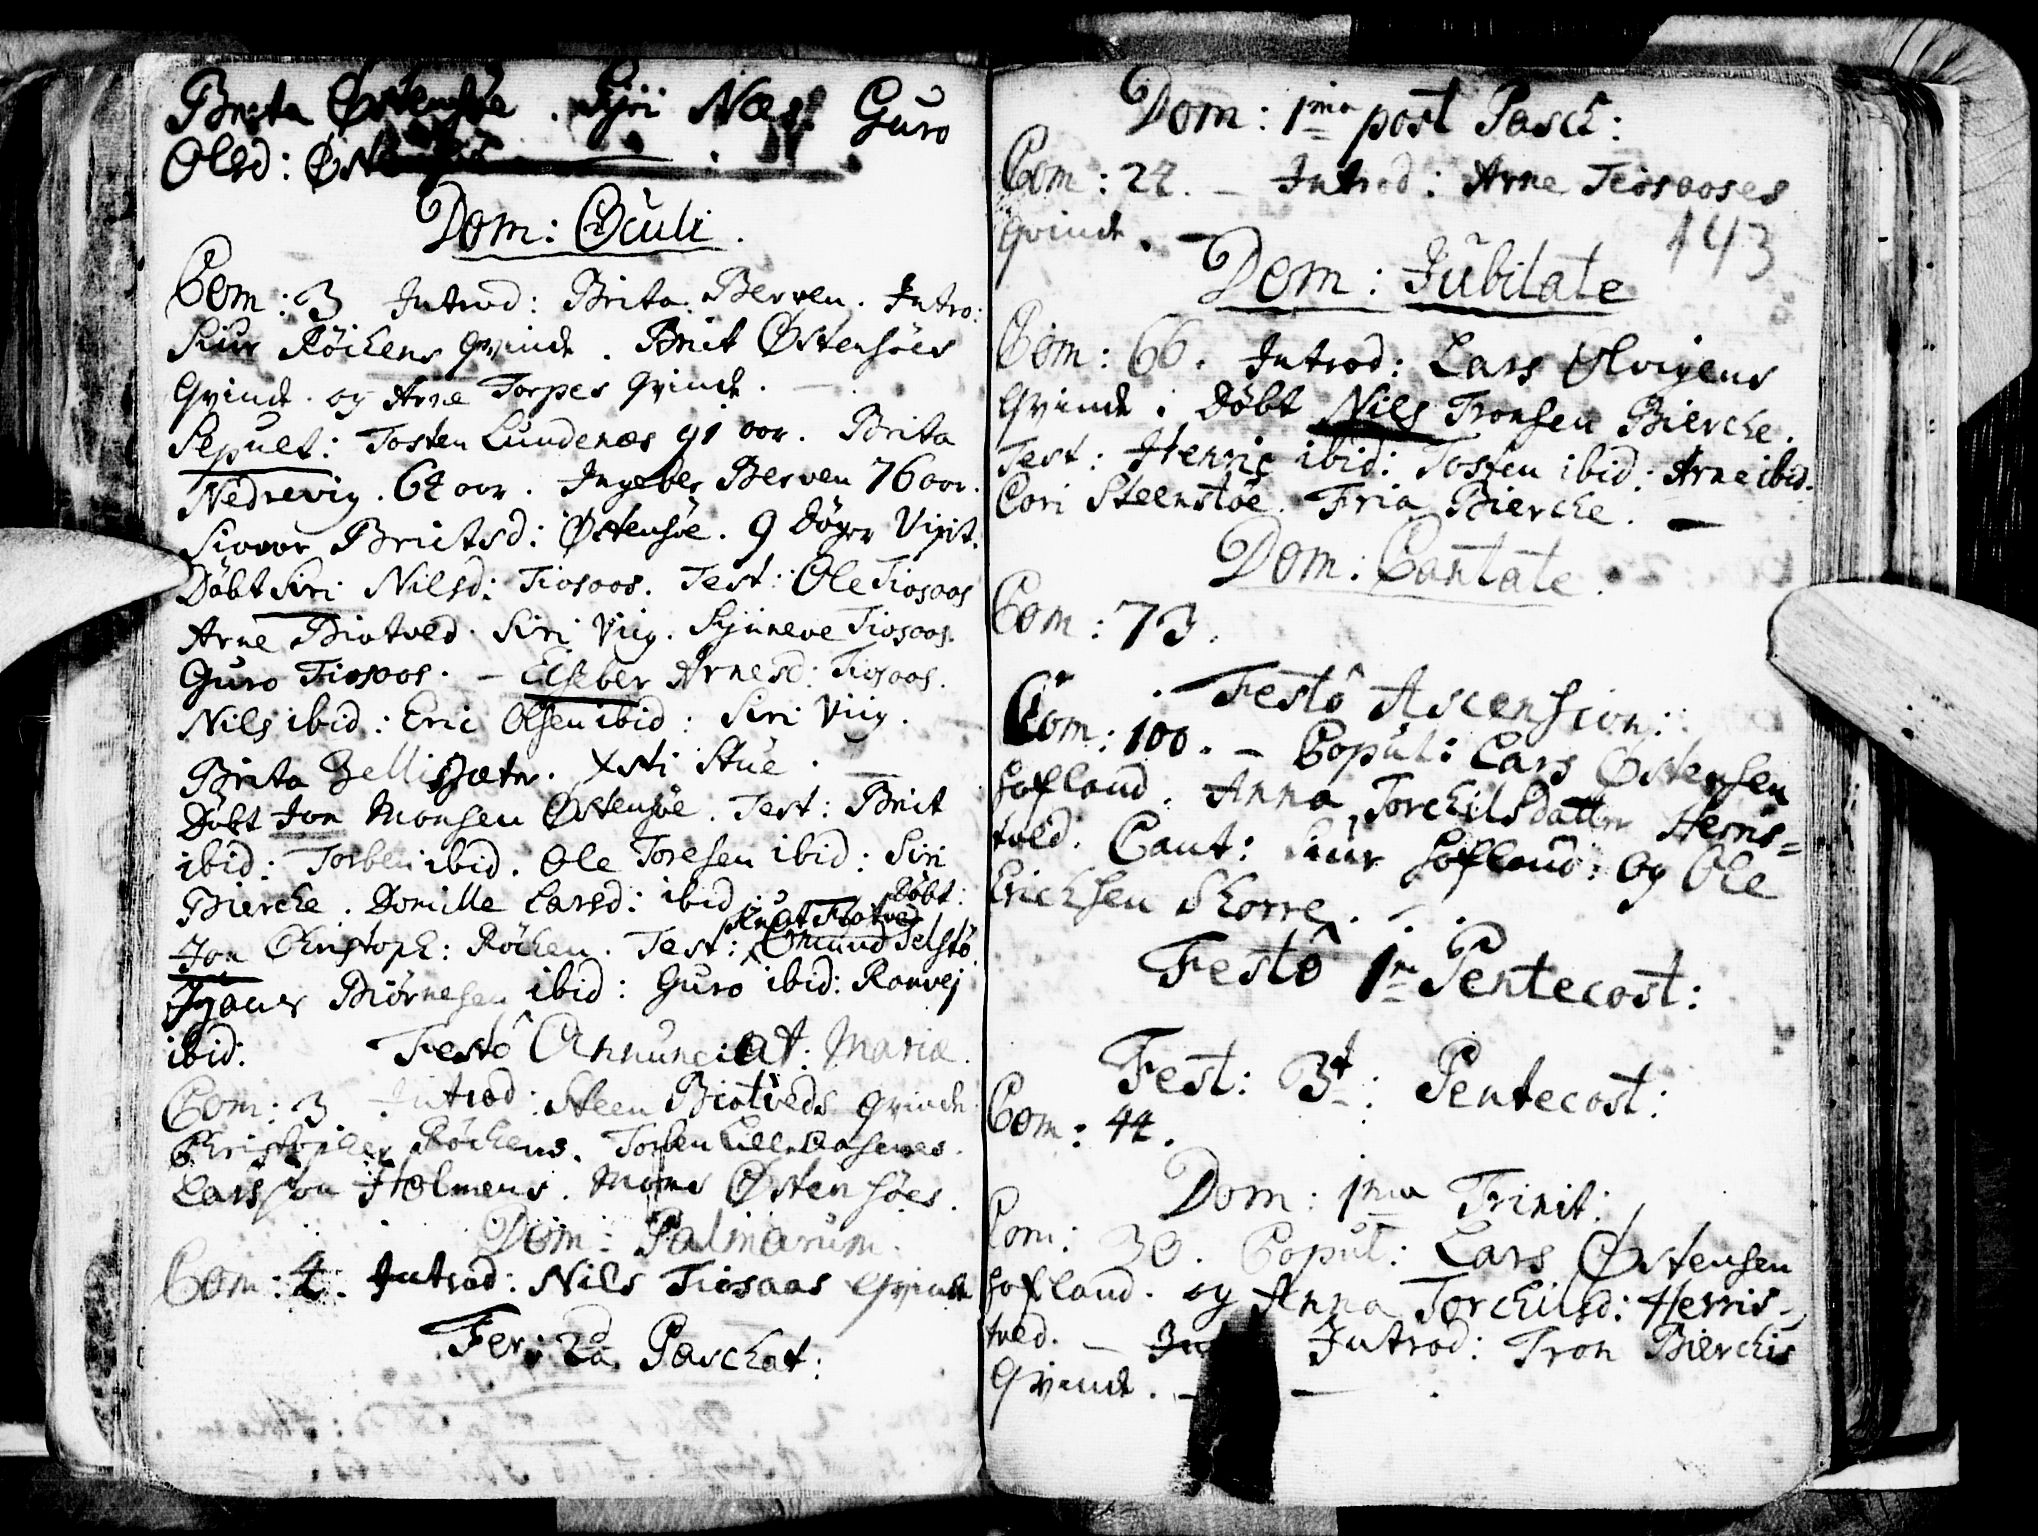 Brita Østensøe. Siri Næs. Guro
Olsd: Østensøe
Dom: Oculi.
Com: 3 Introd: Brita Berven. Intro:
Siur Röikens Qvinde. Brict Østensöes
Qvinde. og Arne Torpes Qvinde.
Sepult: Tosten Lundenæs 91 aar. Brita
Nedrevig. 64 aar. Ingeber Berven 76 aar.
Siovor Brictsd: Østensøe. 9 Döger Vixit.
Döbt Siri Nilsd: Tiosaas. Test: Ole Tiosaas
Arne Biotved. Siri Viig. Syneve Tiosaas.
Guro Tiosaas. – Elseber Arnesd: Tiosaas.
Nils ibid: Eric Olsen ibid: Siri Viig.
Brita Sæter. Xsti Stue.
Döbt Jon Monsen Østensøe. Test: Brict
ibid: Torben ibid. Ole Toresen ibid: Siri
Bierche. Domille Larsd: ibid. Döbt:
Jon Christoph: Röiken. Test: Knut Flotved Omund Selstö
Biörnesen ibid: Guro ibid: Ranvej
ibid: Festô Annunciat: Mariæ.
Com: 3 Introd: Steen Biotveds Qvinde
Christopher Röikens. Torben
Lars Jon Holmens. Mons Østensöes.
Dom: Palmarum.
Com: 4. Introd: Nils Tiosaas Qvinde
Fer: 2da Paschat:
Dom: 1ma post Pasch:
Com: 24. – Introd: Arne Tiosaases
Qvinde. –
143
Dom: Jubilate
Com: 66. Introd: Lars Alvigens
Qvinde: Döbt Nils Tronsen Bierche.
Test: Henric ibid: Tosten ibid: Arne ibid.
Cori Steenstøe. Fria Bierche. –
Dom: Cantate.
Com: 73.
Festô Ascension:
Com: 100. – Copul: Lars Østensen
Hofland. Anna Torchilsdatter Herris-
tved. Caut: Siur Hofland: og Ole
Erichsen Skorre.
Festô 1m Pentecost:
Fest: 3t: Pentecost:
Com: 44.
Dom: 1ma Trinit:
Com: 30. Copul: Lars Østensen
Hofland. og Anna Torchilsd: Herris-
tved. – In Introd: Tron Bierchis
Qvinde. –